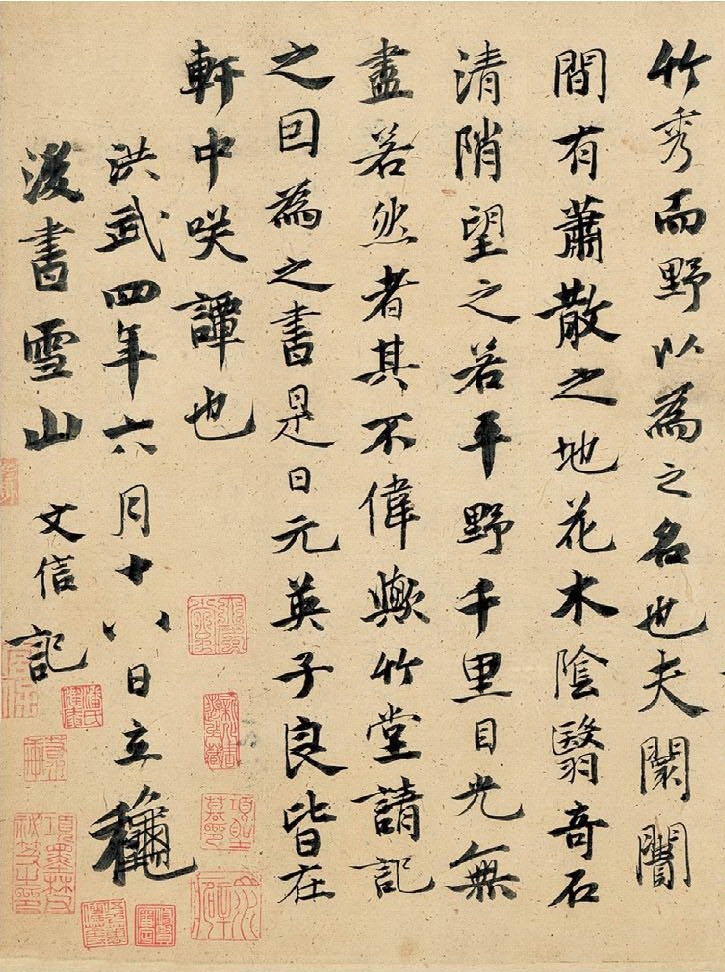 竹秀而野以為之名也夫闤闠
間有蕭散之地花木陰翳奇石
清陗望之若平野千里目光無
盡若然者其不偉歟竹堂請記
之囙為之書是日元英子良皆在
軒中咲譚也
洪武四年六月十八日立穐
後書雪山文信記
項墨林父秘笈之印